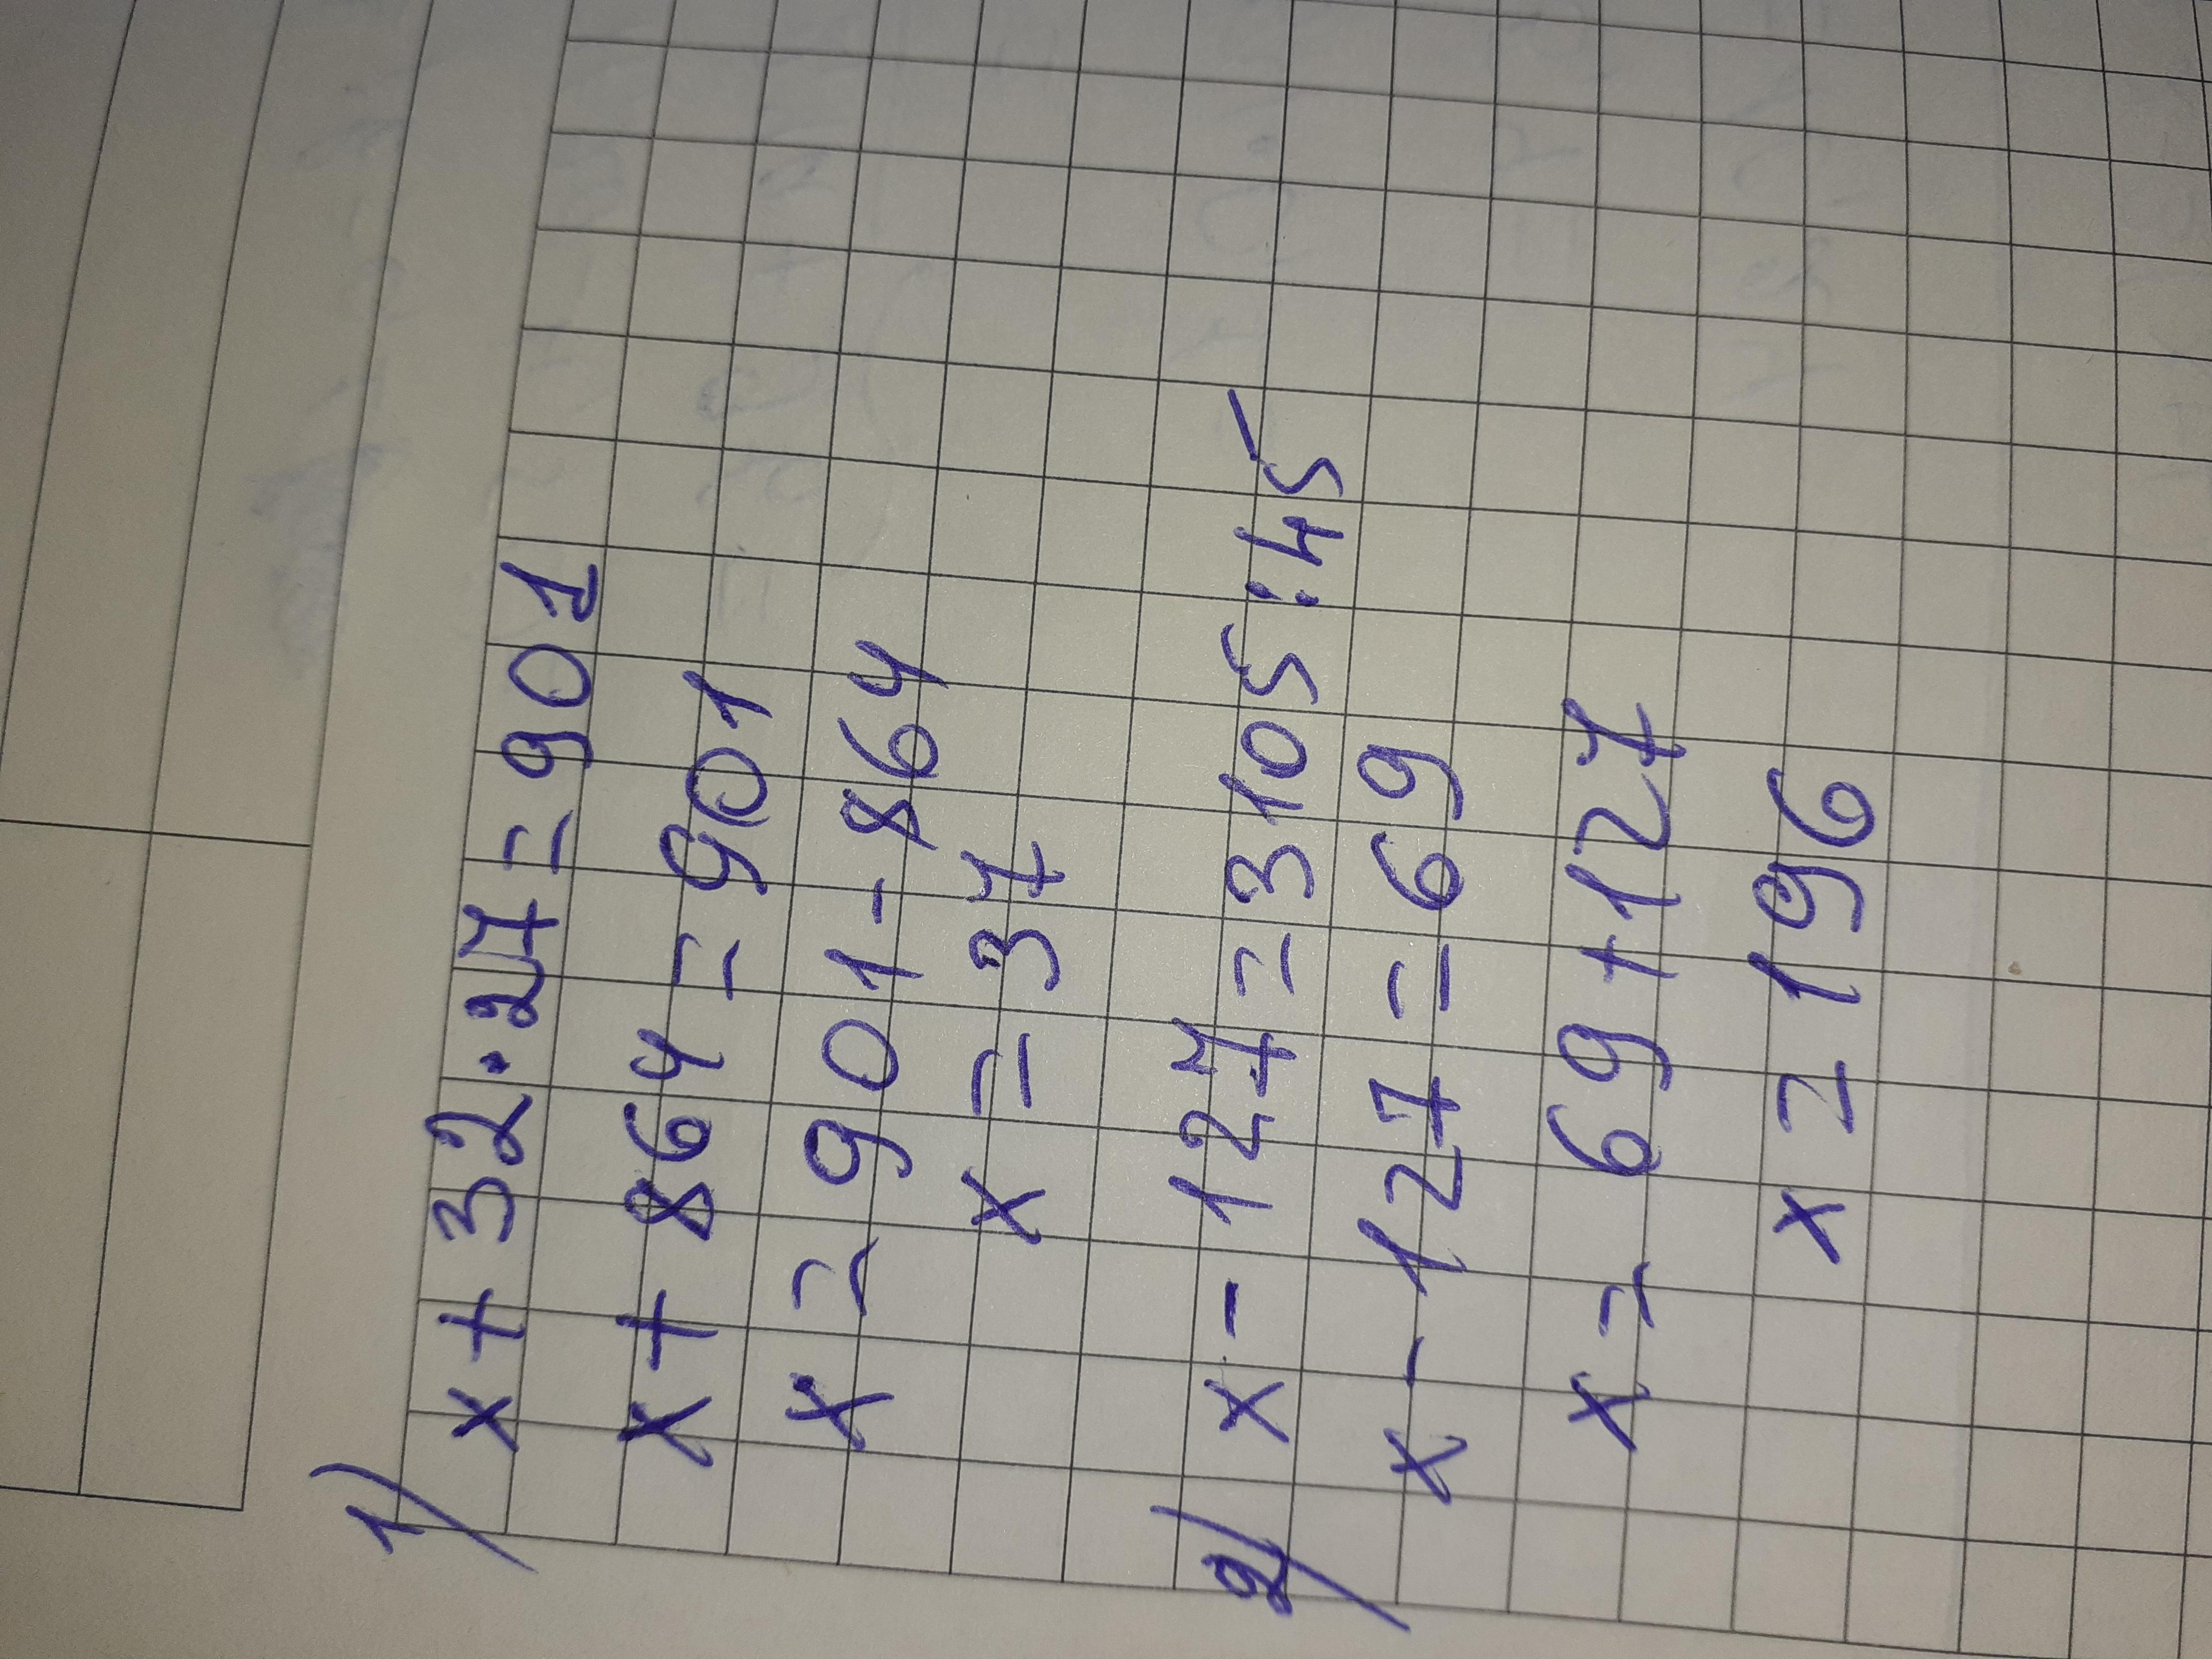 1)
x + 32 · 27 = 901
x + 864 = 901
x = 901 - 864
x = 37
2) x - 127 = 3105 : 45
x - 127 = 69
x = 69 + 127
x = 196